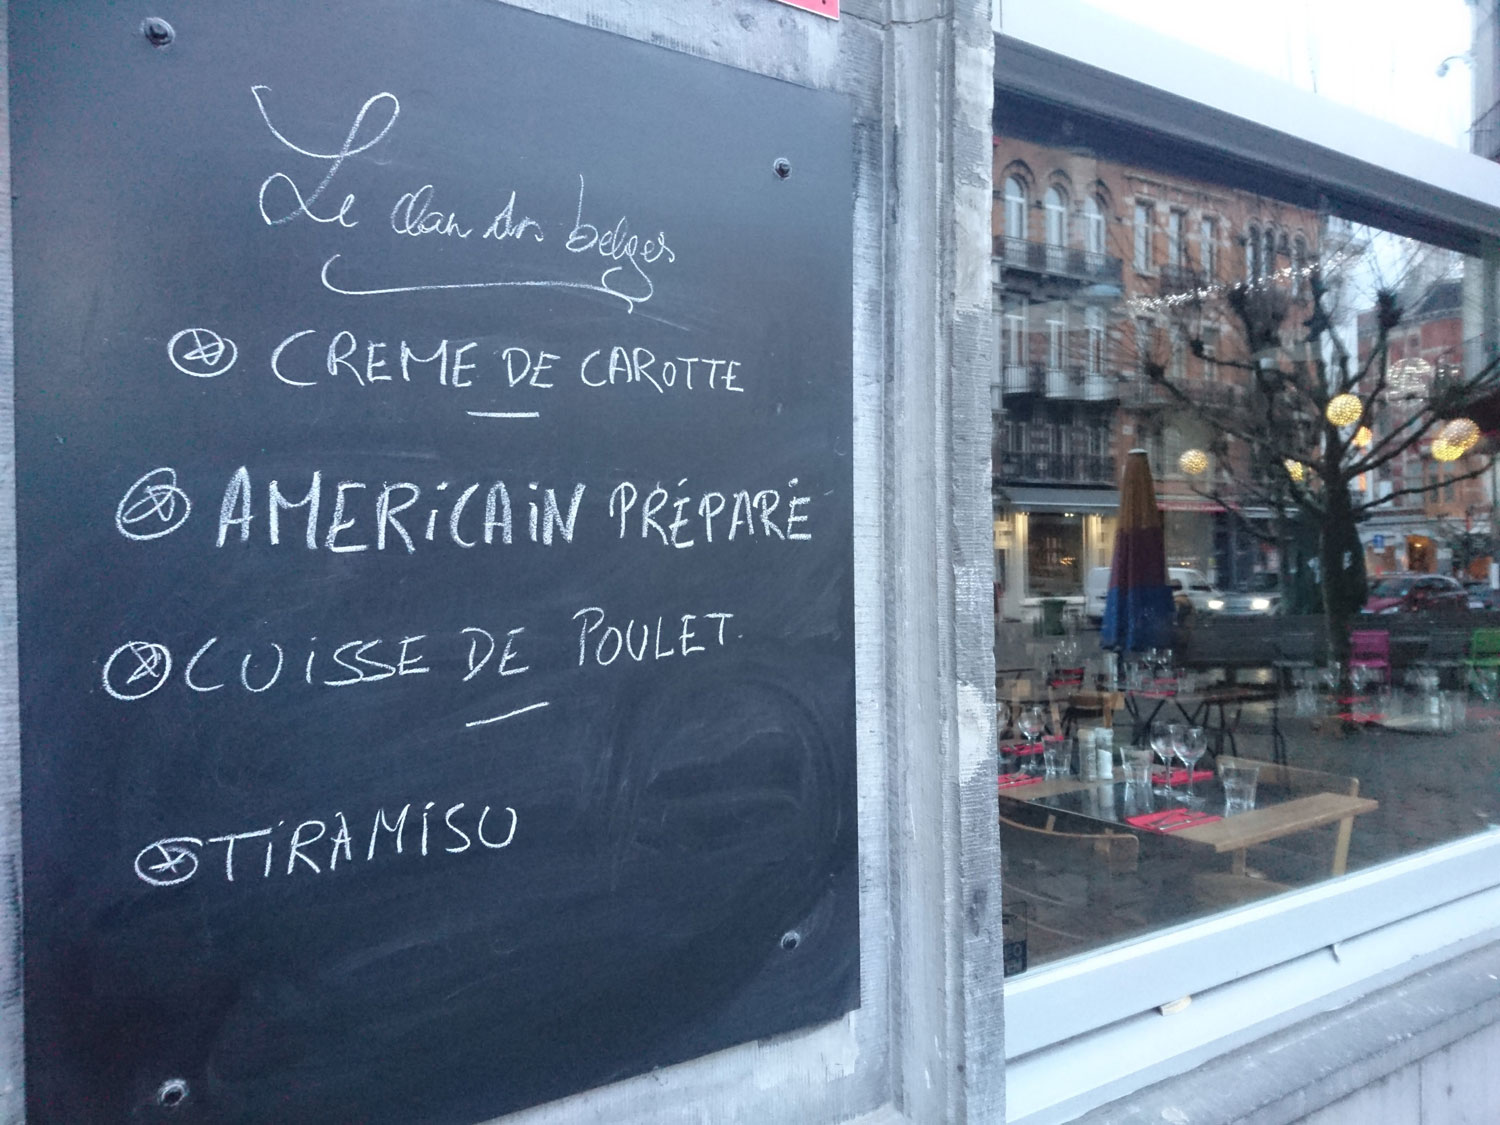 Le clan des belges
CREME DE CAROTTE
AMERiCAiN PRÉPARÉ
CUiSSE DE POULET
TiRAMiSU